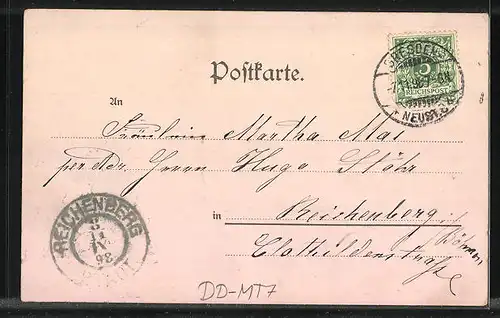 Postkarte.
DRESDEN
NEUST.
5
REICHSPOST
An
Fräulein Martha Mai
per Adr. Herrn Hugo Stöhr
in Reichenberg i/
Böhmen
Clothildenstraße
REICHENBERG
3
IV
98
STADT
DD-MT7